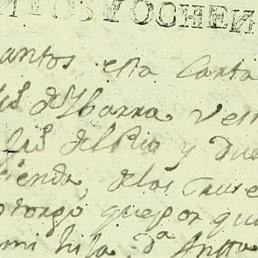 TOS Y OCHEN
antos esta Carta
is de Ybarra Ves
Luis del Rio y Due
ienda, de los Trese
otorgo que por qu
mi hija, D.ª Antt.ª